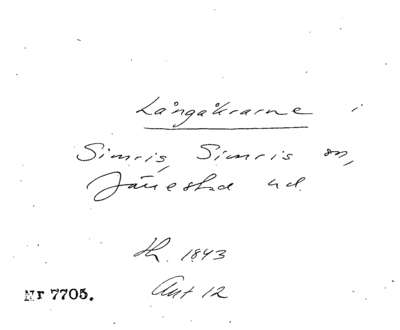 Långåkrarne i
Simris, Simris sn,
Järrestad hd.
Th. 1843
Akt 12
Nr 7705.